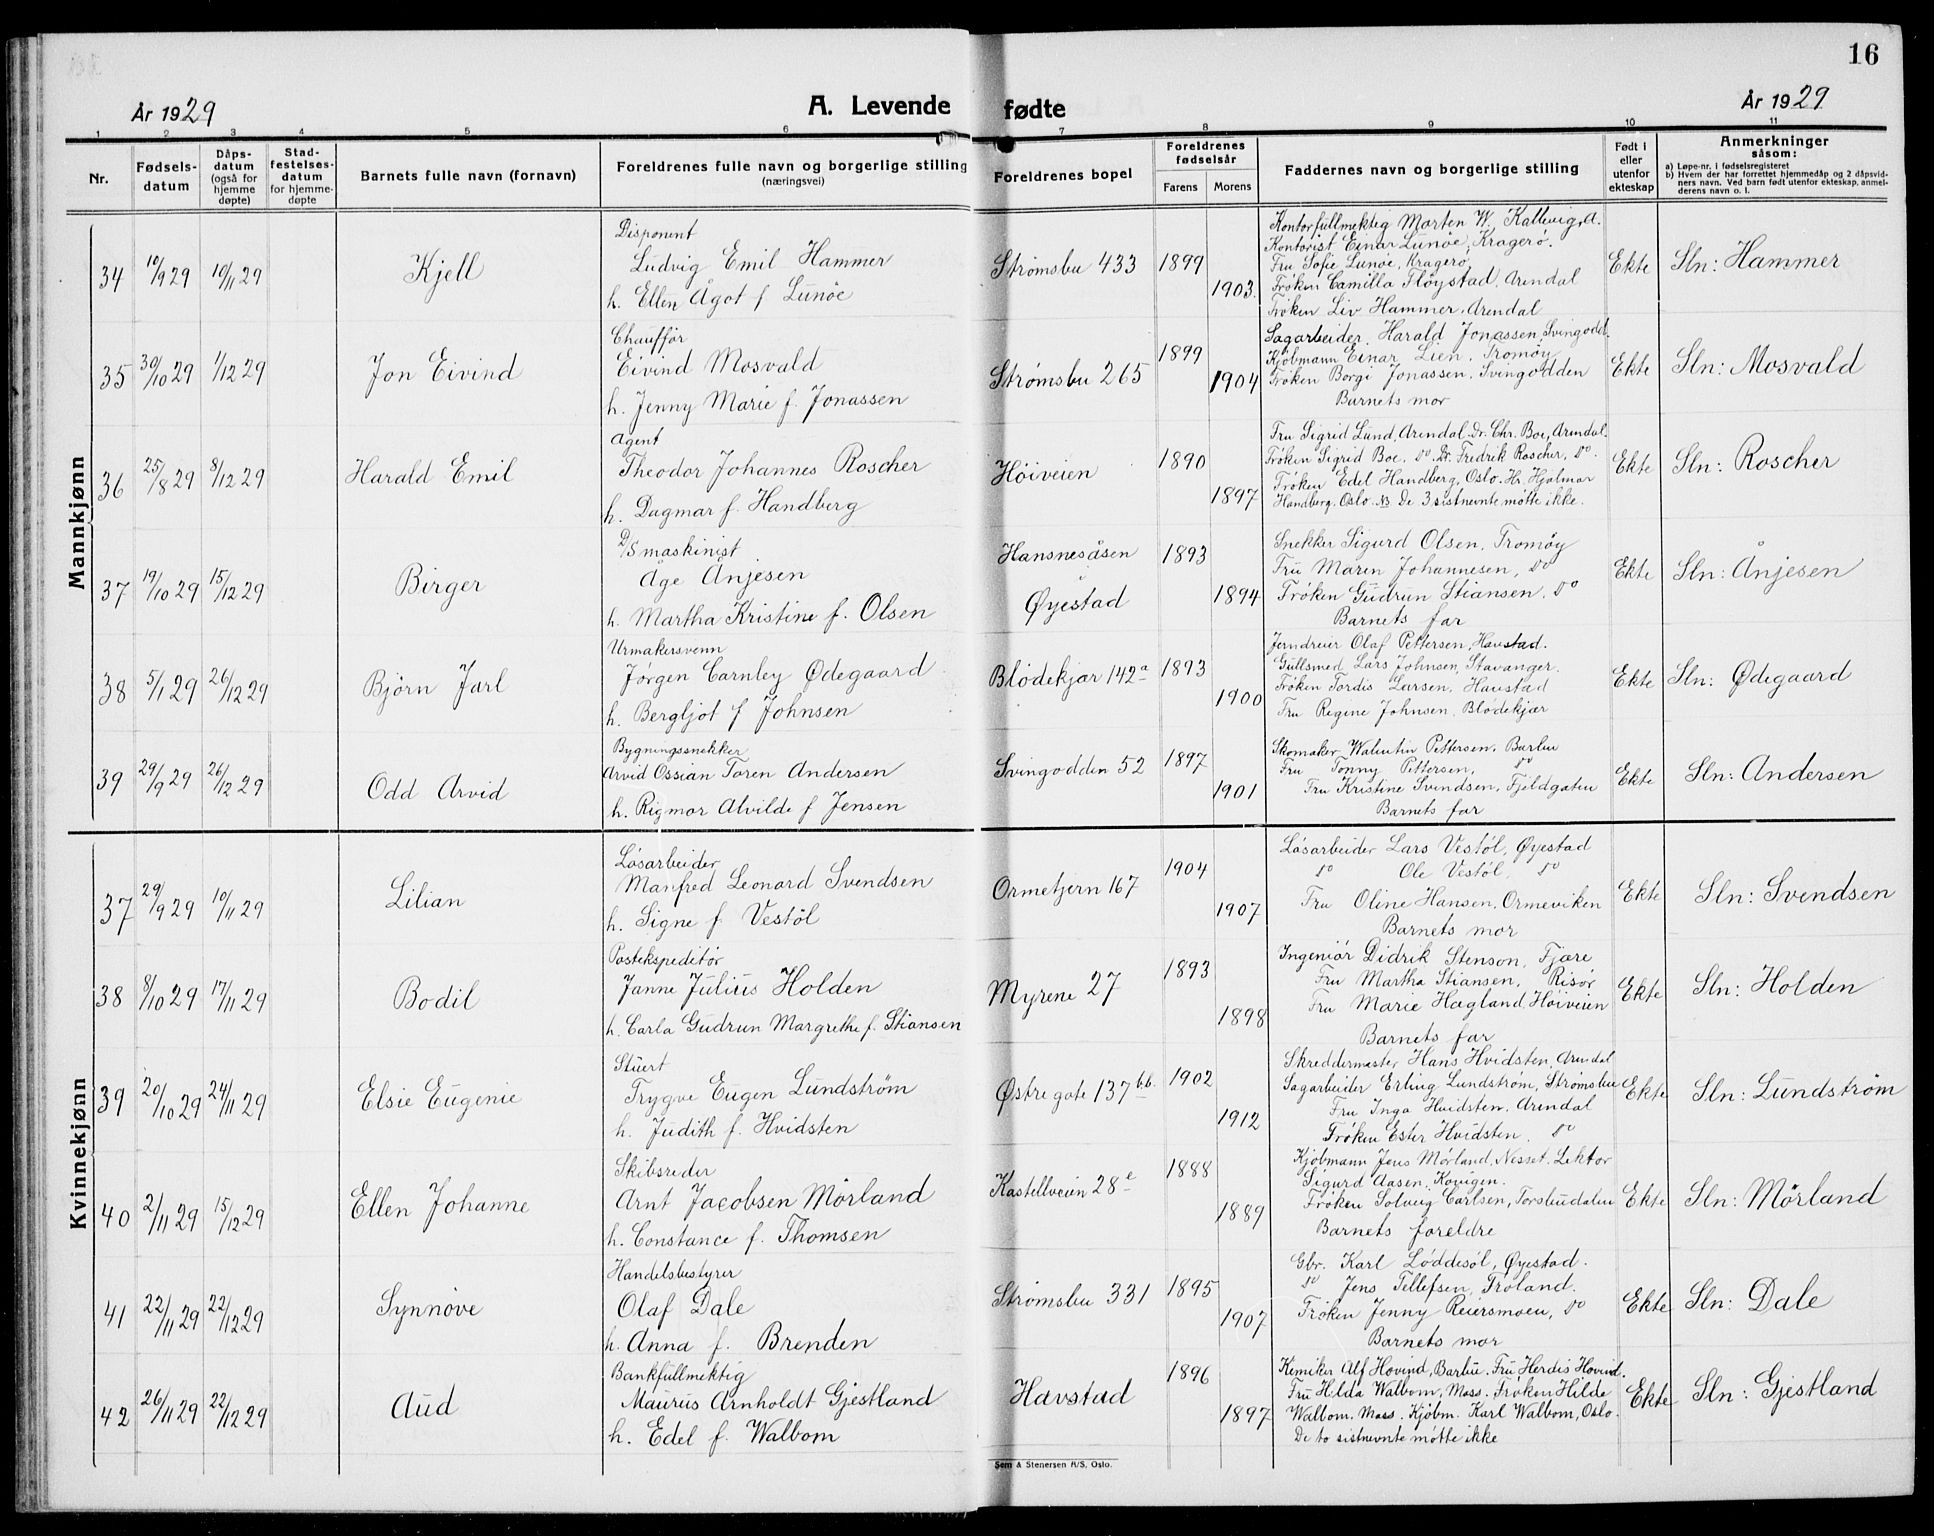 16
År 1929
A. Levende fødte
År 1929
1 2 3 4 5 6 7 8 9 10 11
Nr.
Fødsels-
datum
Dåps-
datum
(også for
hjemme
døpte)
Stad-
festelses-
datum
for hjemme-
døpte
Barnets fulle navn (fornavn)
Foreldrenes fulle navn og borgerlige stilling
(næringsvei)
Foreldrenes bopel
Foreldrenes
fødselsår
Farens Morens
Faddernes navn og borgerlige stilling
Født i
eller
utenfor
ekteskap
Anmerkninger
såsom:
a) Løpe-nr. i fødselsregisteret
b) Hvem der har forrettet hjemmedåp og 2 dåpsvid-
ners navn. Ved barn født utenfor ekteskap, anmel-
derens navn o. l.
Mannkjønn
34 10/9 29 10/11 29
Kjell
Disponent
Ludvig Emil Hammer
h. Ellen Ågot f Lunöe
Strømsbu 433
1899
1903.
Kontorfullmektig Marten W. Kallevig, A.
Kontorist Einar Lunöe, Kragerø.
Fru Sofie Lunöe, Kragerø
Frøken Camilla Fløystad, Arendal
Frøken Liv Hammer, Arendal
Ekte
Sln: Hammer
35 30/10 29 1/12 29
Jon Eivind
Chauffør
Eivind Mosvald
h. Jenny Marie f. Jonassen
Strømsbu 265
1899
1904
Sagarbeider Harald Jonassen, Svingodd.
Kjøbmann Einar Lien, Tromøy
Frøken Borgi Jonassen, Svingodden
Barnets mor
Ekte
Sln: Mosvald
36 25/8 29 8/12 29
Harald Emil
Agent
Theodor Johannes Roscher
h. Dagmar f. Handberg
Höiveien
1890
1897
Fru Sigrid Lund, Arendal. Dr. Chr. Boe, Arendal.
Frøken Sigrid Boe. do Dr. Fredrik Roscher, do.
Frøken Edel Handberg, Oslo. Hr. Hjalmar
Handberg. Oslo. NB De 3 sistnevnte møtte ikke.
Ekte
Sln: Roscher
37 19/10 29 15/12 29
Birger
D/S maskinist
Åge Ånjesen
h. Martha Kristine f. Olsen
Hansnesåsen
Øyestad
1893
1894
Snekker Sigurd Olsen, Tromøy
Fru Maren Johannesen, do
Frøken Gudrun Stiansen, do
Barnets far
Ekte
Sln: Ånjesen
38 5/1 29 26/12 29
Bjørn Jarl
Urmakersvenn
Jørgen Carnley Ødegaard
h. Bergljot f Johnsen
Blödekjær 142a
1893
1900
Jerndreier Olaf Pettersen, Havstad.
Gullsmed Lars Johnsen, Stavanger.
Frøken Tordis Larsen, Havstad
Fru Regine Johnsen, Blödekjær
Ekte
Sln: Ødegaard
39 29/9 29 26/12 29
Odd Arvid
Bygningssnekker
Arvid Ossian Toren Andersen
h. Rigmor Alvilde f Jensen
Svingodden 52
1897
1901
Skomaker Walentin Pettersen, Barbu
Fru Tonny Pettersen, do
Fru Kristine Svendsen, Fjeldgaten
Barnets far
Ekte
Sln: Andersen
Kvinnekjønn
37 29/9 29 10/11 29
Lilian
Løsarbeider
Manfred Leonard Svendsen
h. Signe f Vestöl
Ormetjern 167
1904
1907
Løsarbeider Lars Vestöl, Øyestad
do Ole Vestöl, do
Fru Oline Hansen, Ormeviken
Barnets mor
Ekte
Sln: Svendsen
38 8/10 29 17/11 29
Bodil
Postekspeditør
Janne Julius Holden
h. Carla Gudrun Margrethe f. Stiansen
Myrene 27
1893
1898
Ingeniør Didrik Stenson, Fjære
Fru Martha Stiansen, Risør
Fru Marie Hagland, Höiveien
Barnets far
Ekte
Sln: Holden
39 20/10 29 24/11 29
Elsie Eugenie
Stuert
Trygve Eugen Lundstrøm
h. Judith f. Hvidsten
Østregate 137bb.
1902
1912
Skreddermester Hans Hvidsten, Arendal
Sagarbeider Erling Lundstrøm, Strømsbu
Fru Inga Hvidsten, Arendal
Frøken Ester Hvidsten, do
Ekte
Sln: Lundstrøm
40 2/11 29 15/12 29
Ellen Johanne
Skibsreder
Arnt Jacobsen Mørland
h. Constance f. Thomsen
Kastellveien 28e
1888
1889
Kjøbmann Jens Mørland, Nesset. Lektor
Sigurd Aasen, Kovigen.
Frøken Solveig Carlsen, Torsbudalen
Barnets foreldre
Ekte
Sln: Mørland
41 22/11 29 22/12 29
Synnøve
Handelsbestyrer
Olaf Dale
h. Anna f. Brenden
Strømsbu 331
1895
1907
Gbr. Karl Løddesøl, Øyestad.
do Jens Tellefsen, Froland.
Frøken Jenny Reiersmoen, do
Barnets mor
Ekte
Sln: Dale
42 26/11 29 22/12 29
Aud
Bankfullmektig
Maurus Arnholdt Gjestland
h. Edel f. Walbom
Havstad
1896
1897
Kemiker Alf Hovind, Barbu. Fru Herdis Hovind.
Fru Hilda Walbom, Moss. Frøken Hilde
Walbom. Moss. Kjøbm. Karl Walbom, Oslo.
De to sistnevnte møtte ikke
Ekte
Sln: Gjestland
Sem & Stenersen A/S, Oslo.